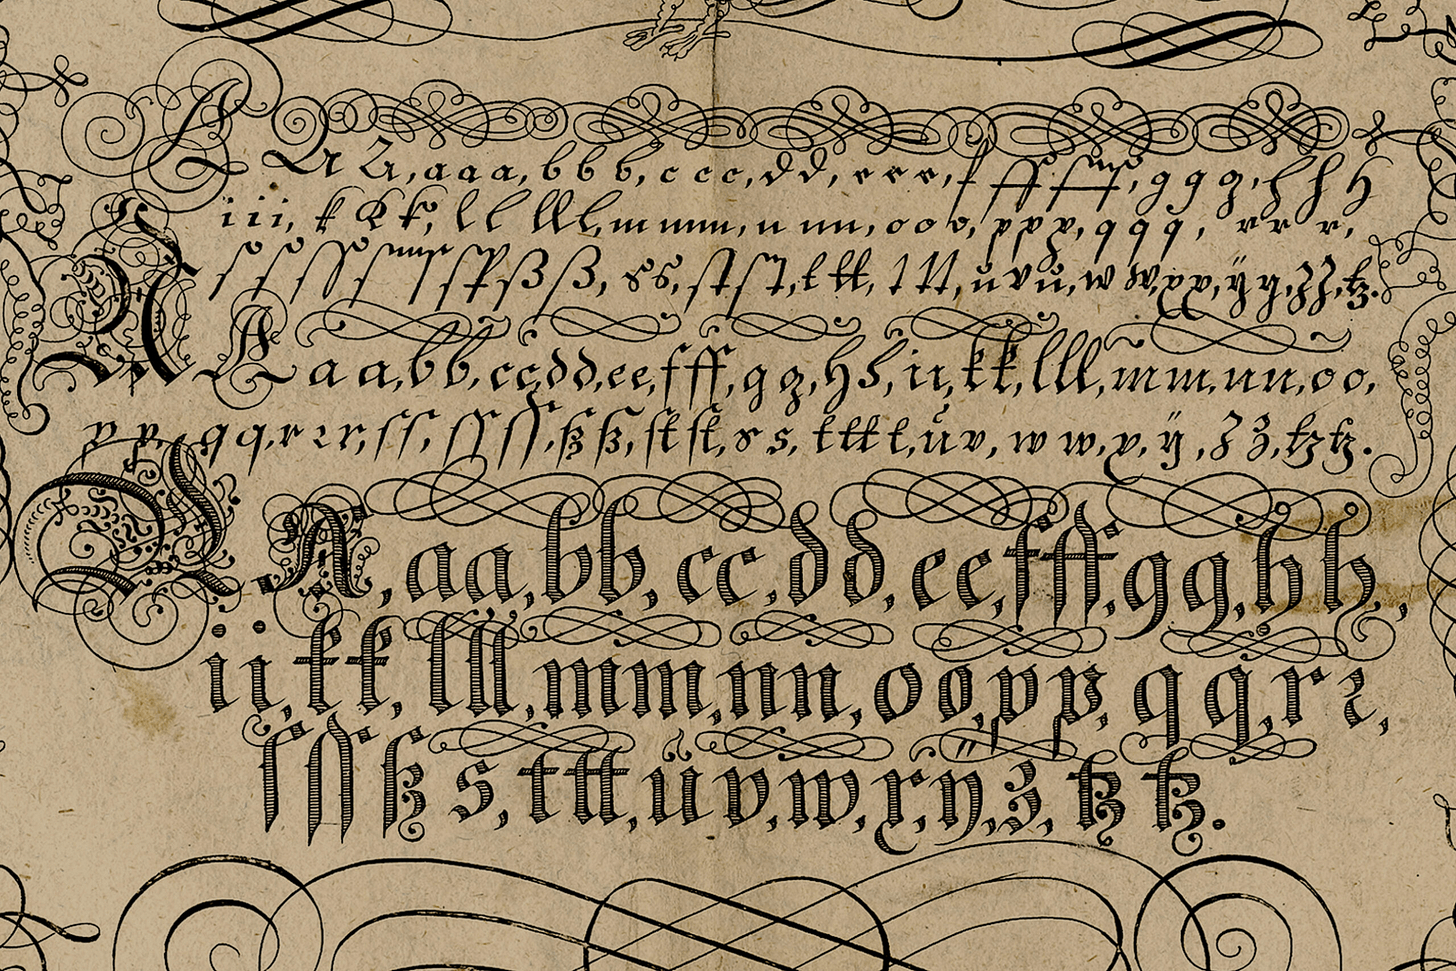 A A A, a a a, b b b, c c c, d d, e e e, f ff fff, g g g, h h h
i i i, k k k, l l ll ll, m m m, n n n, o o o, p p p, q q q, r r r,
ſ ſ ſſ ſſ ſp ß ß, s s, ſt ſt, t tt, t tt, ü v ü, w w, x x, ÿ y, z z, tz.
A A a a, b b, c c, d d, e e, f ff, g g, h h, i i, k k, l ll, m m, n n, o o,
p p, q q, r ꝛ r, ſ ſ, ſſ ſſ, ß ß, ſt ſt, s s, t tt t, ü v, w w, x, ÿ, z z, tz tz.
A A, a a, b b, c c, d d, e e, f ff, g g, h h,
i i, k k, l ll, m m, n n, o o, p p, q q, r ꝛ,
ſ ſſ ß s, t tt, ü v, w, x, ÿ, z, tz tz.